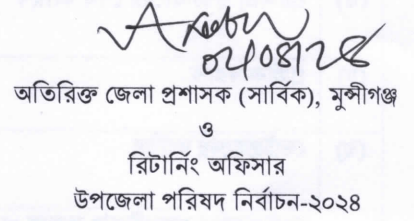 ০২/০৪/২৪
অতিরিক্ত জেলা প্রশাসক (সার্বিক), মুন্সীগঞ্জ
ও
রিটার্নিং অফিসার
উপজেলা পরিষদ নির্বাচন-২০২৪